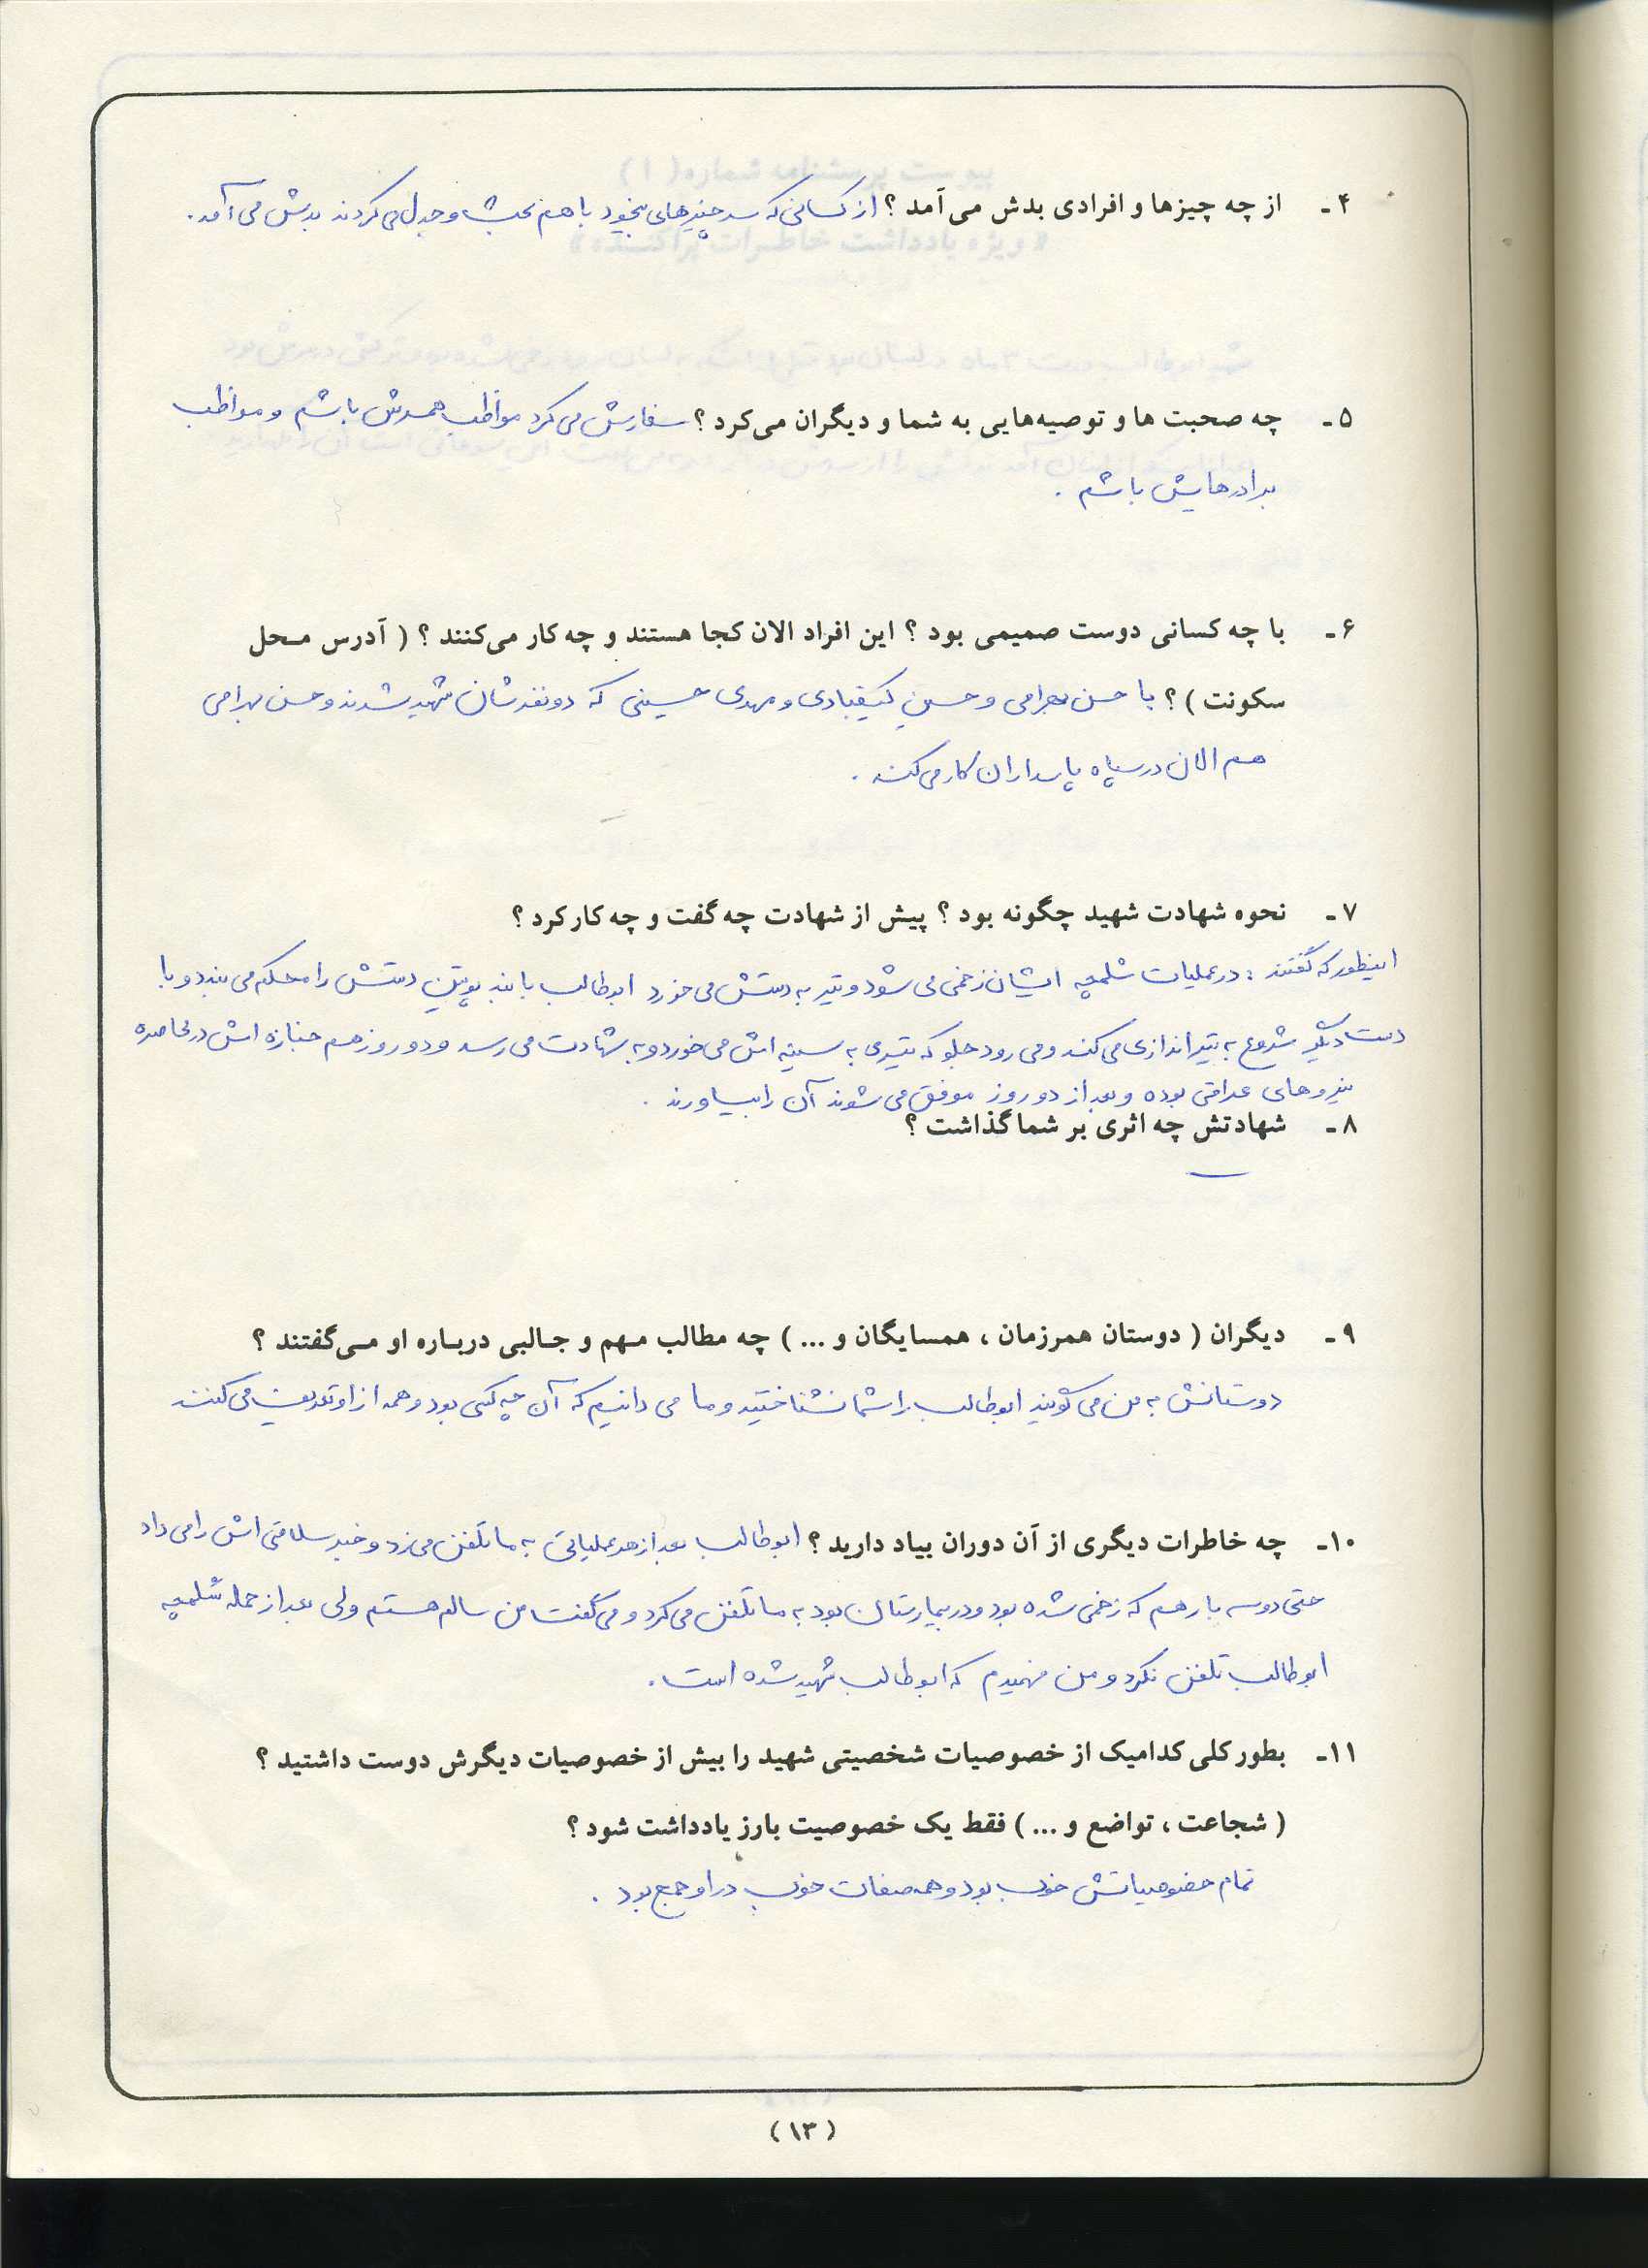 ۴ـ از چه چیزها و افرادی بدش می آمد ؟ از کسانی که سر چیزهای بیخود با هم بحث و جدل می کردند بدش می آمد .
۵ـ چه صحبت ها و توصیه‌هایی به شما و دیگران می‌کرد ؟ سفارش می کرد مواظب همسرش باشم و مواظب
برادرهایش باشم .
۶ـ با چه کسانی دوست صمیمی بود ؟ این افراد الان کجا هستند و چه کار می‌کنند ؟ ( آدرس محل
سکونت ) ؟ با حسن بهرامی و حسین کیقبادی و مهدی حسینی که دو نفرشان شهید شدند و حسن بهرامی
هم الان در سپاه پاسداران کار می کند .
۷ـ نحوه شهادت شهید چگونه بود ؟ پیش از شهادت چه گفت و چه کار کرد ؟
اینطور که گفتند : در عملیات شلمچه ایشان زخمی می شود و تیر به دستش می خورد ابوطالب با بند پوتین دستش را محکم می بندد و با
دست دیگر شروع به تیراندازی می کند و می رود جلو که تیری به سینه اش می خورد و به شهادت می رسد و دو روز هم جنازه اش در محاصره
نیروهای عراقی بوده و بعد از دو روز موفق می شوند آن را بیاورند .
۸ـ شهادتش چه اثری بر شما گذاشت ؟
ـ
۹ـ دیگران ( دوستان همرزمان ، همسایگان و ... ) چه مطالب مهم و جالبی درباره او می‌گفتند ؟
دوستانش به من می گویند ابوطالب را شما نشناختید و ما می دانیم که آن چه کسی بود و همه از او تعریف می کنند
۱۰ـ چه خاطرات دیگری از آن دوران بیاد دارید ؟ ابوطالب بعد از هر عملیاتی به ما تلفن می زد و خبر سلامتی اش را می داد
حتی دو سه بار هم که زخمی شده بود و در بیمارستان بود به ما تلفن می کرد و می گفت من سالم هستم ولی بعد از حمله شلمچه
ابوطالب تلفن نکرد و من فهمیدم که ابوطالب شهید شده است .
۱۱ـ بطور کلی کدامیک از خصوصیات شخصیتی شهید را بیش از خصوصیات دیگرش دوست داشتید ؟
( شجاعت ، تواضع و ... ) فقط یک خصوصیت بارز یادداشت شود ؟
تمام خصوصیاتش خوب بود و همه صفات خوب در او جمع بود .
( ۱۳ )